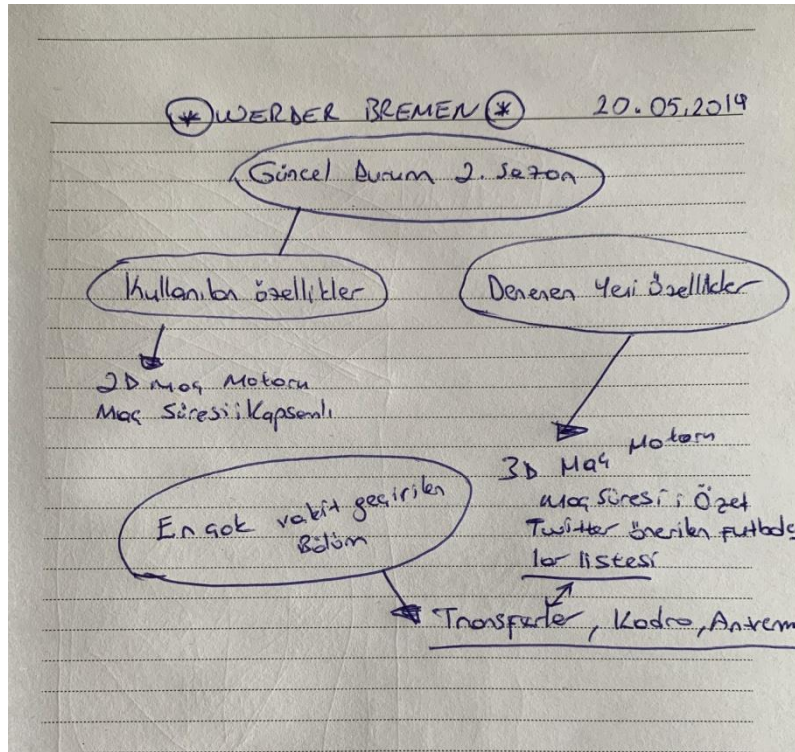 * WERDER BREMEN * 20.05.2019
Güncel Durum 2. Sezon
Kullanılan özellikler
Denenen Yeni Özellikler
2D Maç Motoru
Maç Süresi: Kapsamlı
3D Maç Motoru
Maç Süresi: Özet
Twitter önerilen futbolc
lar listesi
En çok vakit geçirilen
Bölüm
Transferler, Kadro, Antrem